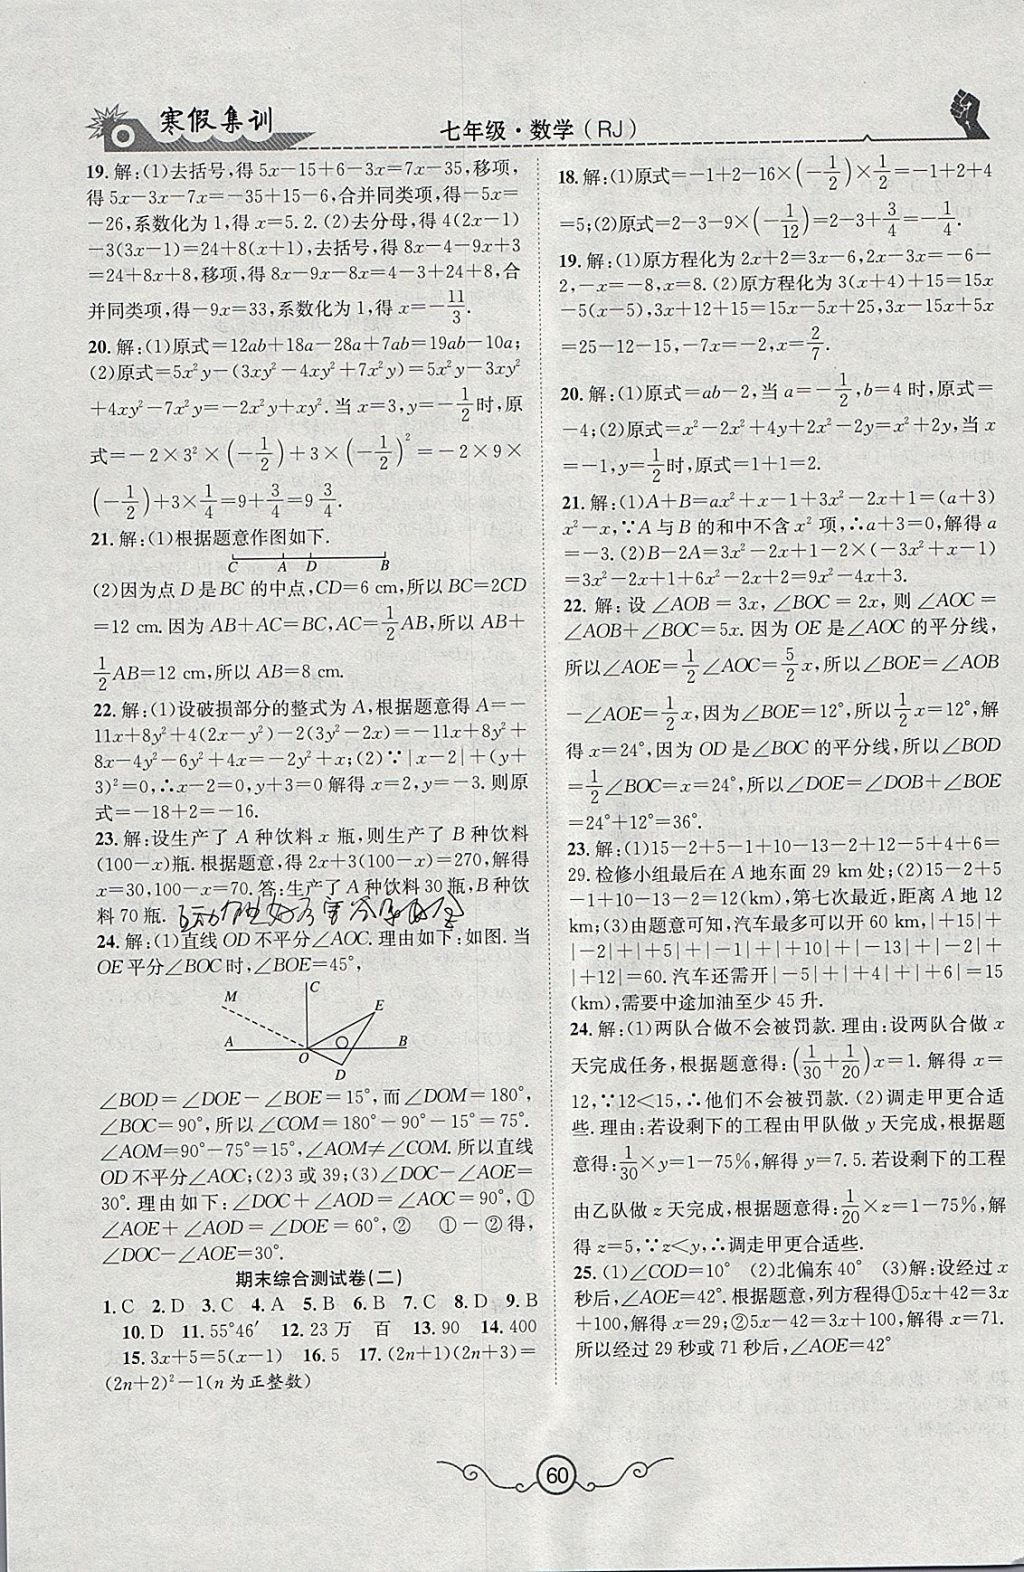 寒假集训
七年级·数学(RJ)
19.解:(1)去括号,得5x-15+6-3x=7x-35,移项,
得5x-3x-7x=-35+15-6,合并同类项,得-5x=
-26,系数化为1,得x=5.2.(2)去分母,得4(2x-1)
-3(3x-1)=24+8(x+1),去括号,得8x-4-9x+3
=24+8x+8,移项,得8x-9x-8x=4-3+24+8,合
并同类项,得-9x=33,系数化为1,得x=-11/3.
20.解:(1)原式=12ab+18a-28a+7ab=19ab-10a;
(2)原式=5x²y-(3xy²-4xy²+7x²y)=5x²y-3xy²
+4xy²-7x²y=-2x²y+xy².当x=3,y=-1/2时,原
式=-2×3²×(-1/2)+3×(-1/2)²=-2×9×
(-1/2)+3×1/4=9+3/4=9 3/4.
21.解:(1)根据题意作图如下.
C A D B
(2)因为点D是BC的中点,CD=6 cm,所以BC=2CD
=12 cm.因为AB+AC=BC,AC=1/2AB,所以AB+
1/2AB=12 cm,所以AB=8 cm.
22.解:(1)设破损部分的整式为A,根据题意得A=-
11x+8y²+4(2x-y²)-2(3y²-2x)=-11x+8y²+
8x-4y²-6y²+4x=-2y²+x;(2)∵|x-2|+(y+
3)²=0,∴x-2=0,y+3=0解得x=2,y=-3.则原
式=-18+2=-16.
23.解:设生产了A种饮料x瓶,则生产了B种饮料
(100-x)瓶.根据题意,得2x+3(100-x)=270,解得
x=30,100-x=70.答:生产了A种饮料30瓶,B种饮
料70瓶.
24.解:(1)直线OD不平分∠AOC.理由如下:如图.当
OE平分∠BOC时,∠BOE=45°,
M C E
A O B
D
∠BOD=∠DOE-∠BOE=15°,而∠DOM=180°,
∠BOC=90°,所以∠COM=180°-90°-15°=75°,
∠AOM=90°-75°=15°,∠AOM≠∠COM.所以直线
OD不平分∠AOC;(2)3或39;(3)∠DOC-∠AOE=
30°.理由如下:∠DOC+∠AOD=∠AOC=90°,①
∠AOE+∠AOD=∠DOE=60°,② ①-②得,
∠DOC-∠AOE=30°.
期末综合测试卷(二)
1.C 2.D 3.C 4.A 5.B 6.B 7.C 8.D 9.B
10.D 11.55°46′ 12.23万 百 13.90 14.400
15.3x+5=5(x-1) 16.5 17.(2n+1)(2n+3)=
(2n+2)²-1(n为正整数)
18.解:(1)原式=-1+2-16×(-1/2)×1/2=-1+2+4
=5;(2)原式=2-3-9×(-1/12)=2-3+3/4=-1/4.
19.解:(1)原方程化为2x+2=3x-6,2x-3x=-6-
2,-x=-8,x=8.(2)原方程化为3(x+4)+15=15x
-5(x-5),3x+12+15=15x-5x+25,3x-15x+5x
=25-12-15,-7x=-2,x=2/7.
20.解:(1)原式=ab-2,当a=-1/2,b=4时,原式=
-4;(2)原式=x²-2x²+4y+2x²-2y=x²+2y,当x
=-1,y=1/2时,原式=1+1=2.
21.解:(1)A+B=ax²+x-1+3x²-2x+1=(a+3)
x²-x,∵A与B的和中不含x²项,∴a+3=0,解得a
=-3.(2)B-2A=3x²-2x+1-2×(-3x²+x-1)
=3x²-2x+1+6x²-2x+2=9x²-4x+3.
22.解:设∠AOB=3x,∠BOC=2x,则∠AOC=
∠AOB+∠BOC=5x.因为OE是∠AOC的平分线,
所以∠AOE=1/2∠AOC=5/2x,所以∠BOE=∠AOB
-∠AOE=1/2x,因为∠BOE=12°,所以1/2x=12°,解
得x=24°,因为OD是∠BOC的平分线,所以∠BOD
=1/2∠BOC=x=24°,所以∠DOE=∠DOB+∠BOE
=24°+12°=36°.
23.解:(1)15-2+5-1+10-13-2+12-5+4+6=
29.检修小组最后在A地东面29 km处;(2)15-2+5
-1+10-13-2=12(km),第七次最近,距离A地12
km;(3)由题意可知,汽车最多可以开60 km,|+15|+
|-2|+|+5|+|-1|+|+10|+|-13|+|-2|+
|+12|=60.汽车还需开|-5|+|+4|+|+6|=15
(km),需要中途加油至少45升.
24.解:(1)两队合做不会被罚款.理由:设两队合做x
天完成任务,根据题意得:(1/30+1/20)x=1.解得x=
12,∵12<15,∴他们不会被罚款.(2)调走甲更合适
些.理由:若设剩下的工程由甲队做y天完成,根据题
意得:1/30×y=1-75%,解得y=7.5.若设剩下的工程
由乙队做z天完成,根据题意得:1/20×z=1-75%,解
得z=5,∵z<y,∴调走甲更合适些.
25.(1)∠COD=10° (2)北偏东40° (3)解:设经过x
秒后,∠AOE=42°.根据题意,列方程得①5x+42=3x+
100,解得x=29;②5x-42=3x+100,解得x=71.
所以经过29秒或71秒后,∠AOE=42°
60